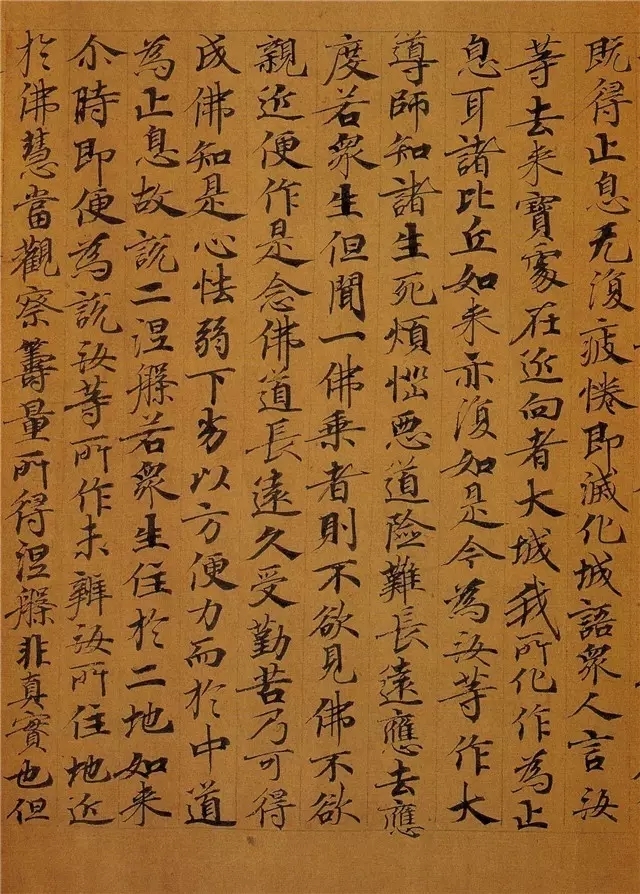 既得止息无復疲惓即滅化城語衆人言汝
等去来寶處在近向者大城我所化作為止
息耳諸比丘如来亦復如是今為汝等作大
導師知諸生死煩惱惡道險難長遠應去應
度若衆生但聞一佛乗者則不欲見佛不欲
親近便作是念佛道長遠久受勤苦乃可得
成佛知是心怯弱下劣以方便力而於中道
為止息故說二涅槃若衆生住於二地如来
尒時即便為說汝等所作未辦汝所住地近
於佛慧當觀察籌量所得涅槃非真實也但